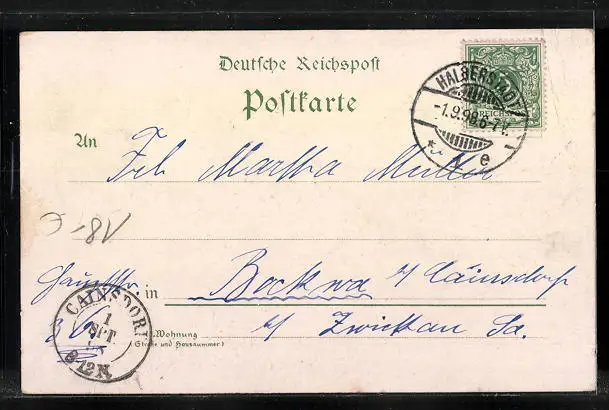 Deutsche Reichspost
Postkarte
HALBERSTADT
-1.9.98.6-7V.
* e
An Frl Martha Müller
18,-
in Bockwa b/ Cainsdorf
CAINSDORF
1
SPT
8-12N
b/ Zwickau Sa.
Wohnung
(Straße und Hausnummer)